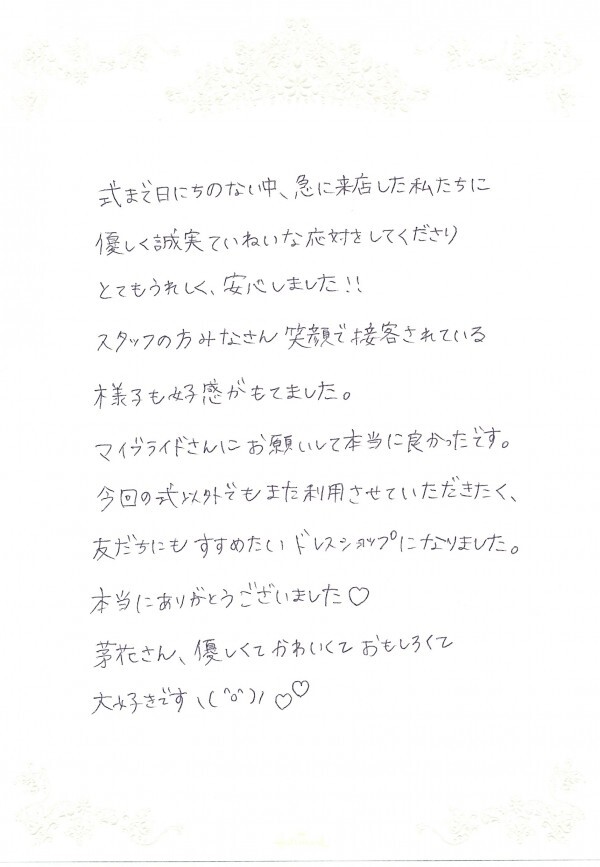 式まで日にちのない中、急に来店した私たちに
優しく誠実ていねいな応対をしてくださり
とてもうれしく、安心しました!!
スタッフの方みなさん笑顔で接客されている
様子も好感がもてました。
マイブライドさんにお願いして本当に良かったです。
今回の式以外でもまた利用させていただきたく、
友だちにもすすめたいドレスショップになりました。
本当にありがとうございました♡
茅花さん、優しくてかわいくておもしろくて
大好きです ヽ(^o^)ﾉ ♡♡